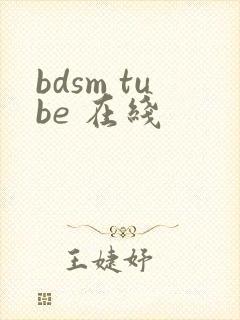 bdsm tu
be 在綫
王婕妤